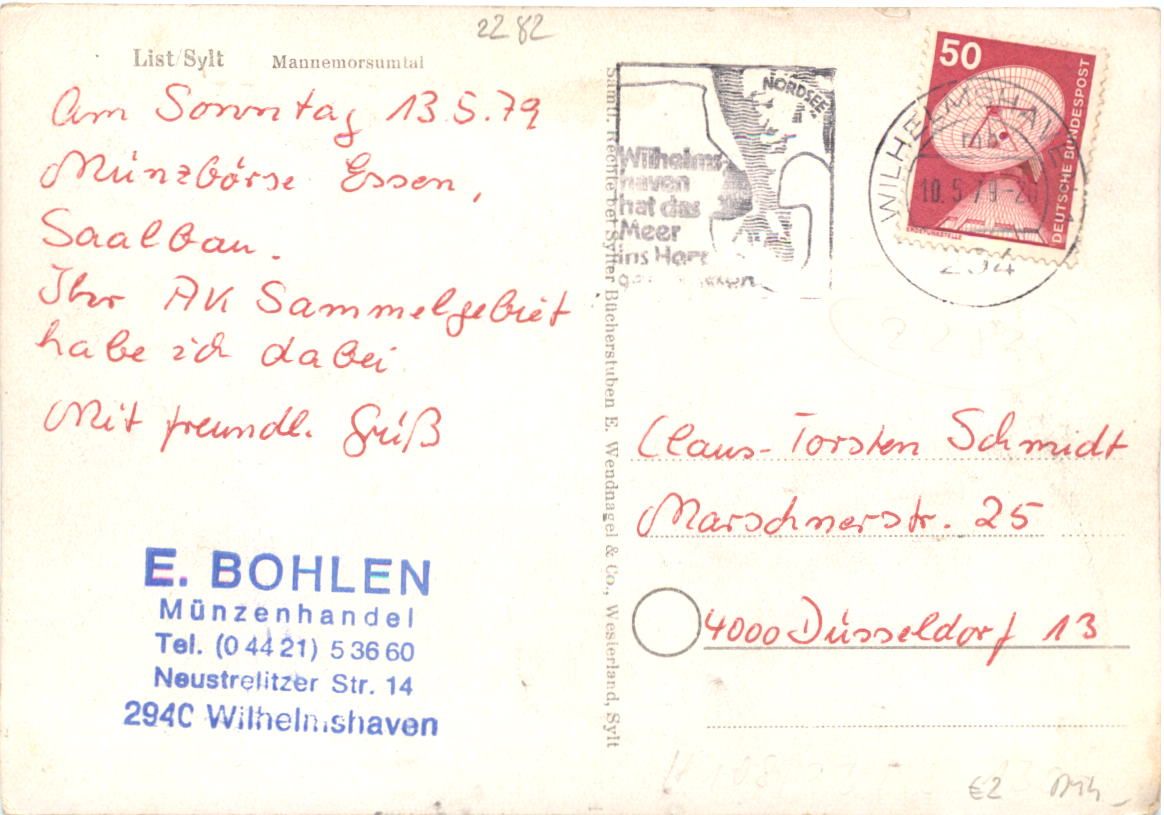 2282
List/Sylt Mannemorsumtal
Am Sonntag 13.5.79
Münzbörse Essen,
Saalbau.
Ihr AK Sammelgebiet
habe ich dabei
Mit freundl. Gruß
E. BOHLEN
Münzenhandel
Tel. (0 44 21) 5 36 60
Neustrelitzer Str. 14
2940 Wilhelmshaven
Sämtl. Rechte bei Sylter Bücherstuben E. Wendnagel & Co., Westerland, Sylt
NORDSEE
Wilhelms-
haven
hat das
Meer
ins Herz
50
DEUTSCHE BUNDESPOST
ERDEFUNKSTELLE
WILHELMSHAVEN
10.5.79-20
294
2282
Claus-Torsten Schmidt
Marschnerstr. 25
4000 Düsseldorf 13
€2